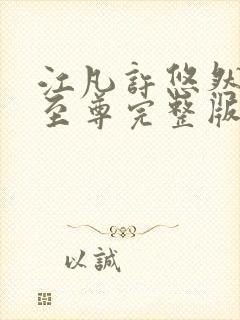 江凡許悠然
至尊完整版
以誠